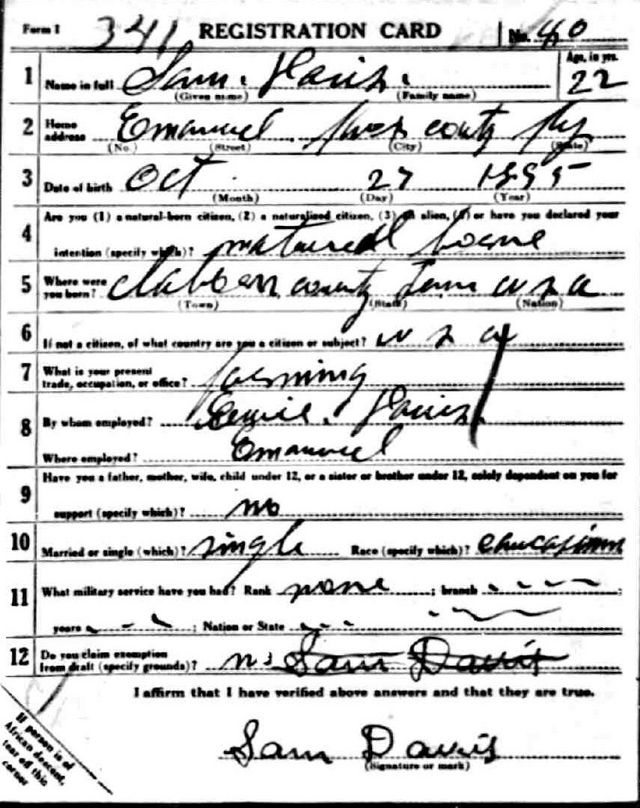 Form 1 341 REGISTRATION CARD No. 40
1 Name in full Sam. Davis. Age, in yrs. 22
(Given name) (Family name)
2 Home address Emanuel Knox county Ky
(No.) (Street) (City) (State)
3 Date of birth Oct 27 1895
(Month) (Day) (Year)
Are you (1) a natural-born citizen, (2) a naturalized citizen, (3) an alien, (4) or have you declared your
4 intention (specify which)?
5 Where were you born? county Tenn U S A
(Town) (State) (Nation)
6 If not a citizen, of what country are you a citizen or subject? U S A
7 What is your present trade, occupation, or office? farming
8 By whom employed? Davis
Where employed? Emanuel
Have you a father, mother, wife, child under 12, or a sister or brother under 12, solely dependent on you for
9 support (specify which)? no
10 Married or single (which)? single Race (specify which)?
11 What military service have you had? Rank none ; branch ;
years ; Nation or State
12 Do you claim exemption from draft (specify grounds)? no Sam Davis
I affirm that I have verified above answers and that they are true.
Sam Davis
(Signature or mark)
If person is of
African descent,
tear off this
corner